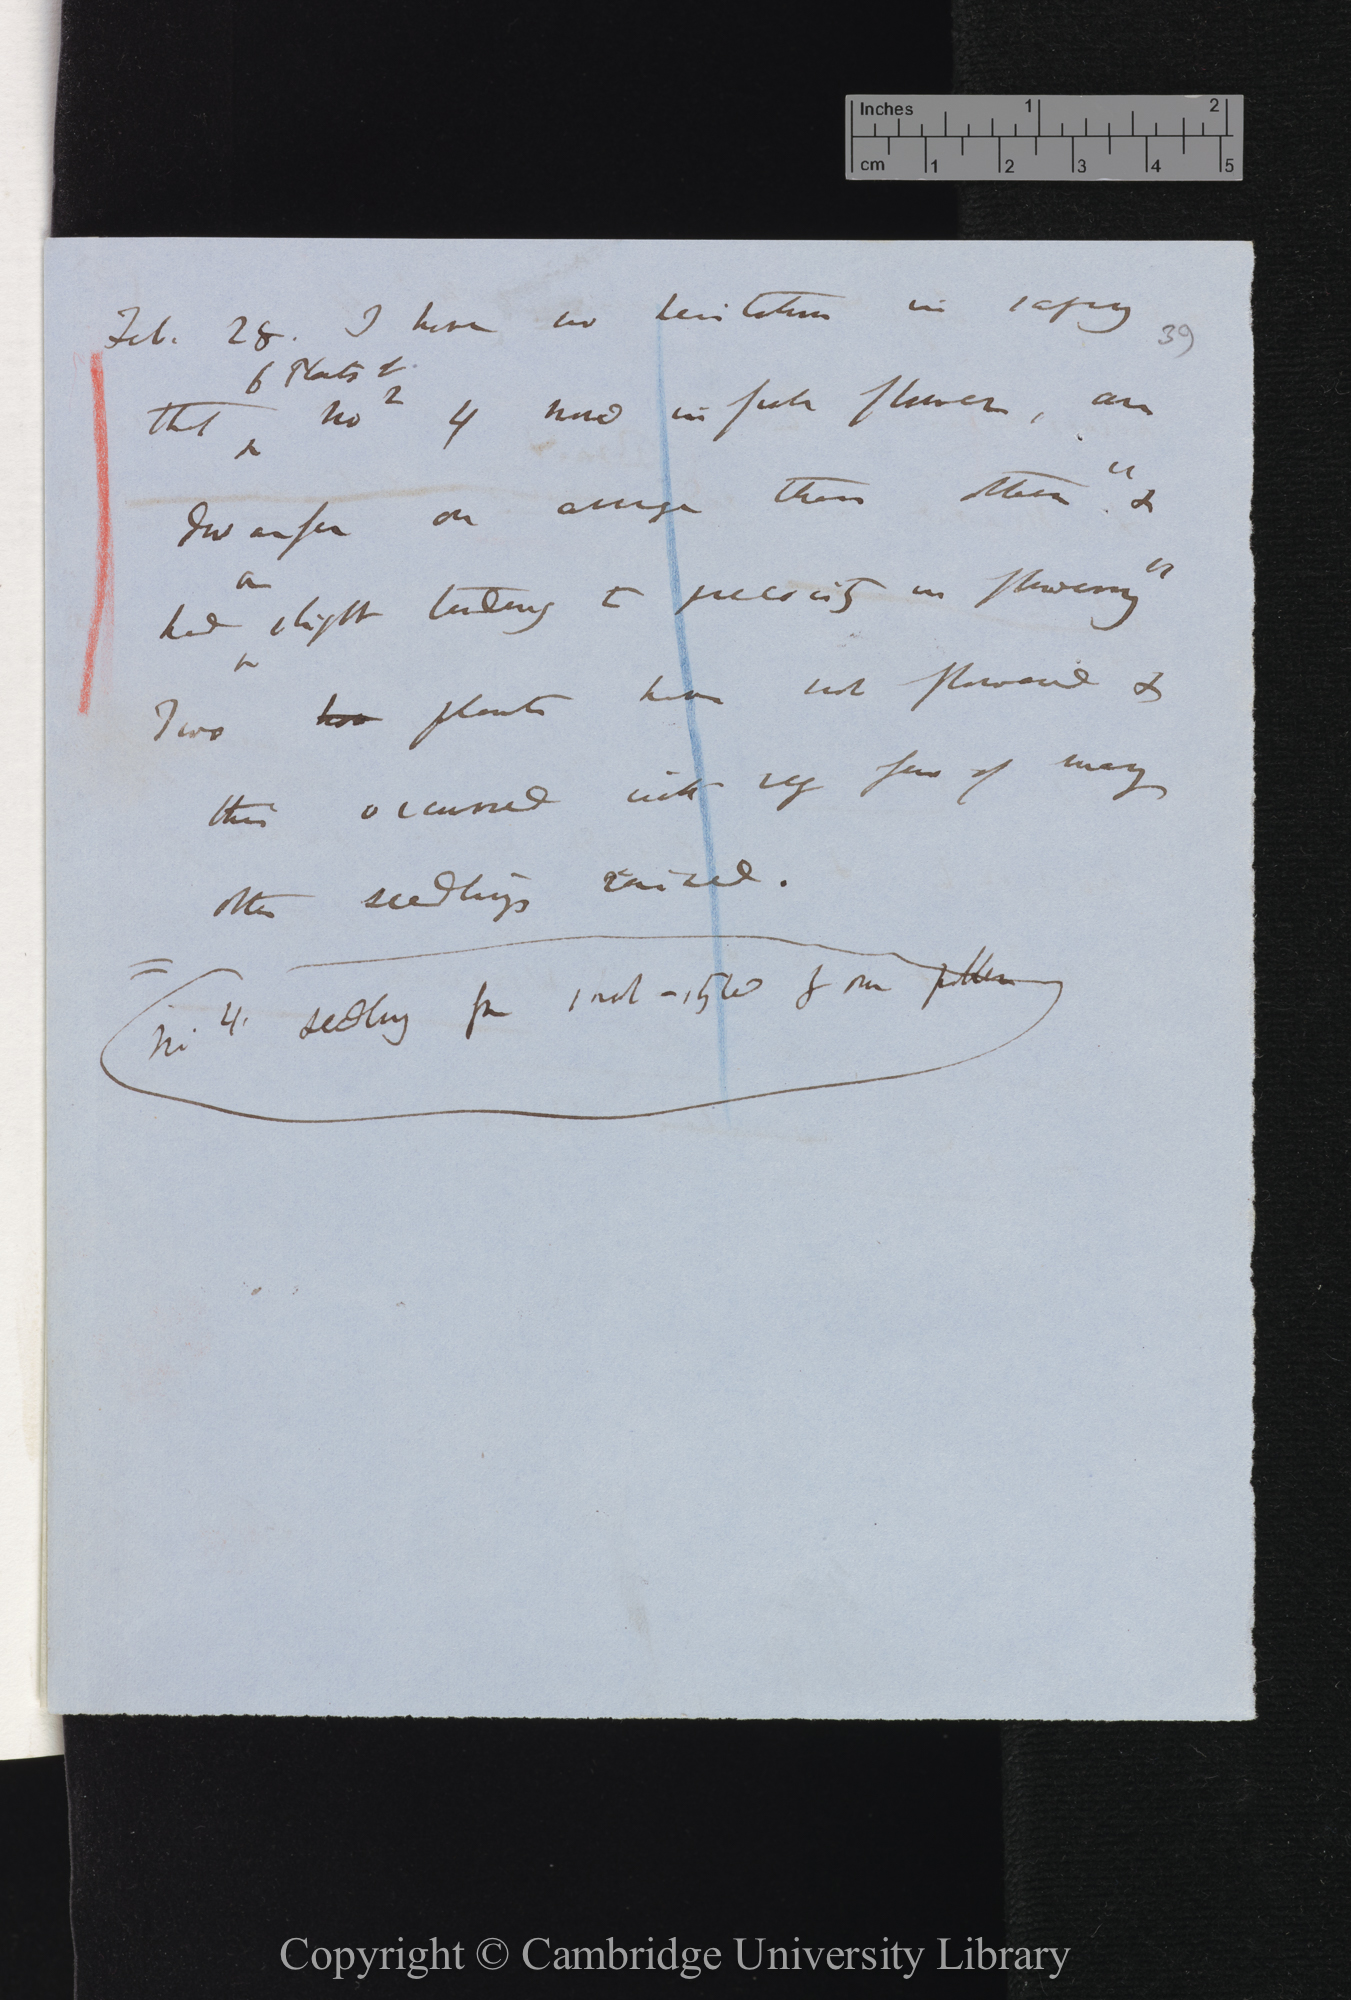 Inches 1 2
cm 1 2 3 4 5
Feb. 28. I have no hesitation in saying
39
6 Plants of
that ^ No 4 now in full flower, are
dwarfer on average than others" &
a
had ^ slight tendency to precocity in flowering"
Two plants have not flowered &
this occurred with very few of many
other seedlings raised.
No 4. seedling from short-styled & own pollen
Copyright © Cambridge University Library